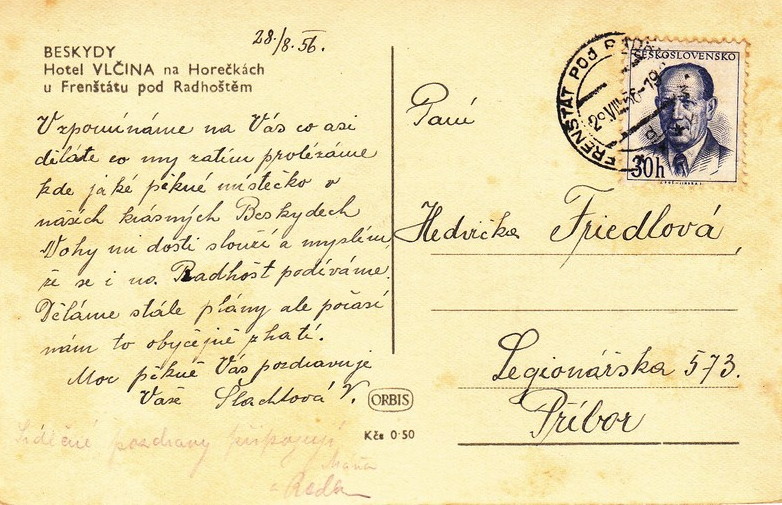 28/8. 56.
BESKYDY
Hotel VLČINA na Horečkách
u Frenštátu pod Radhoštěm
Vzpomínáme na Vás co asi
děláte co my zatím prolézáme
kde jaké pěkné místečko v
našich krásných Beskydech
Nohy mi dosti slouží a myslím,
že se i na Radhošt podíváme.
Děláme stále plány ale počasí
nám to obyčejně zhatí.
Moc pěkně Vás pozdravuje
Vaše Šlachtová V.
Srdečné pozdravy připojují
ORBIS
Kčs 0·50
FRENŠTÁT POD RADH
ČESKOSLOVENSKO
30h
Paní
Hedvička Friedlová,
Legionářska 573.
Příbor